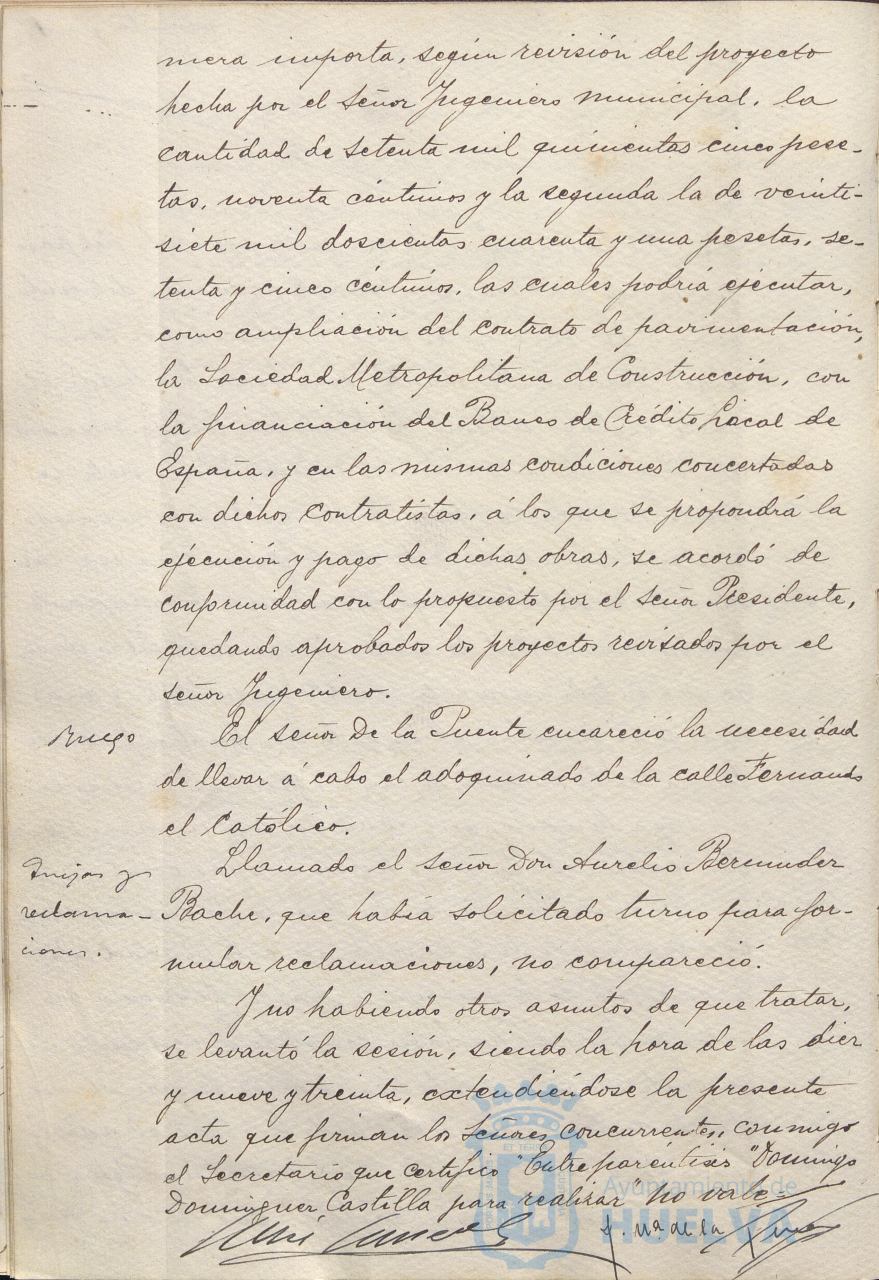 mera importa, según revisión del proyecto
hecha por el señor Ingeniero municipal, la
cantidad de setenta mil quinientas cinco pese-
tas, noventa céntimos y la segunda la de veinti-
siete mil doscientas cuarenta y una pesetas, se-
tenta y cinco céntimos, las cuales podría ejecutar,
como ampliación del contrato de pavimentación,
la Sociedad Metropolitana de Construcción, con
la financiación del Banco de Crédito Local de
España, y en las mismas condiciones concertadas
con dichos contratistas, á los que se propondrá la
ejecución y pago de dichas obras, se acordó de
conformidad con lo propuesto por el señor Presidente,
quedando aprobados los proyectos revisados por el
señor Ingeniero.
Ruego
El señor De la Puente encareció la necesidad
de llevar á cabo el adoquinado de la calle Fernando
el Católico.
Quejas y
reclama-
ciones.
Llamado el señor Don Aurelio Bermudez
Bache, que había solicitado turno para for-
mular reclamaciones, no compareció.
Y no habiendo otros asuntos de que tratar,
se levantó la sesión, siendo la hora de las diez
y nueve y treinta, extendiéndose la presente
acta que firman los Señores concurrentes, conmigo
el Secretario que certifico "Entreparéntisis "Domingo
Dominguez Castilla para realizar" no vale=
de la
Ayuntamiento de
HUELVA